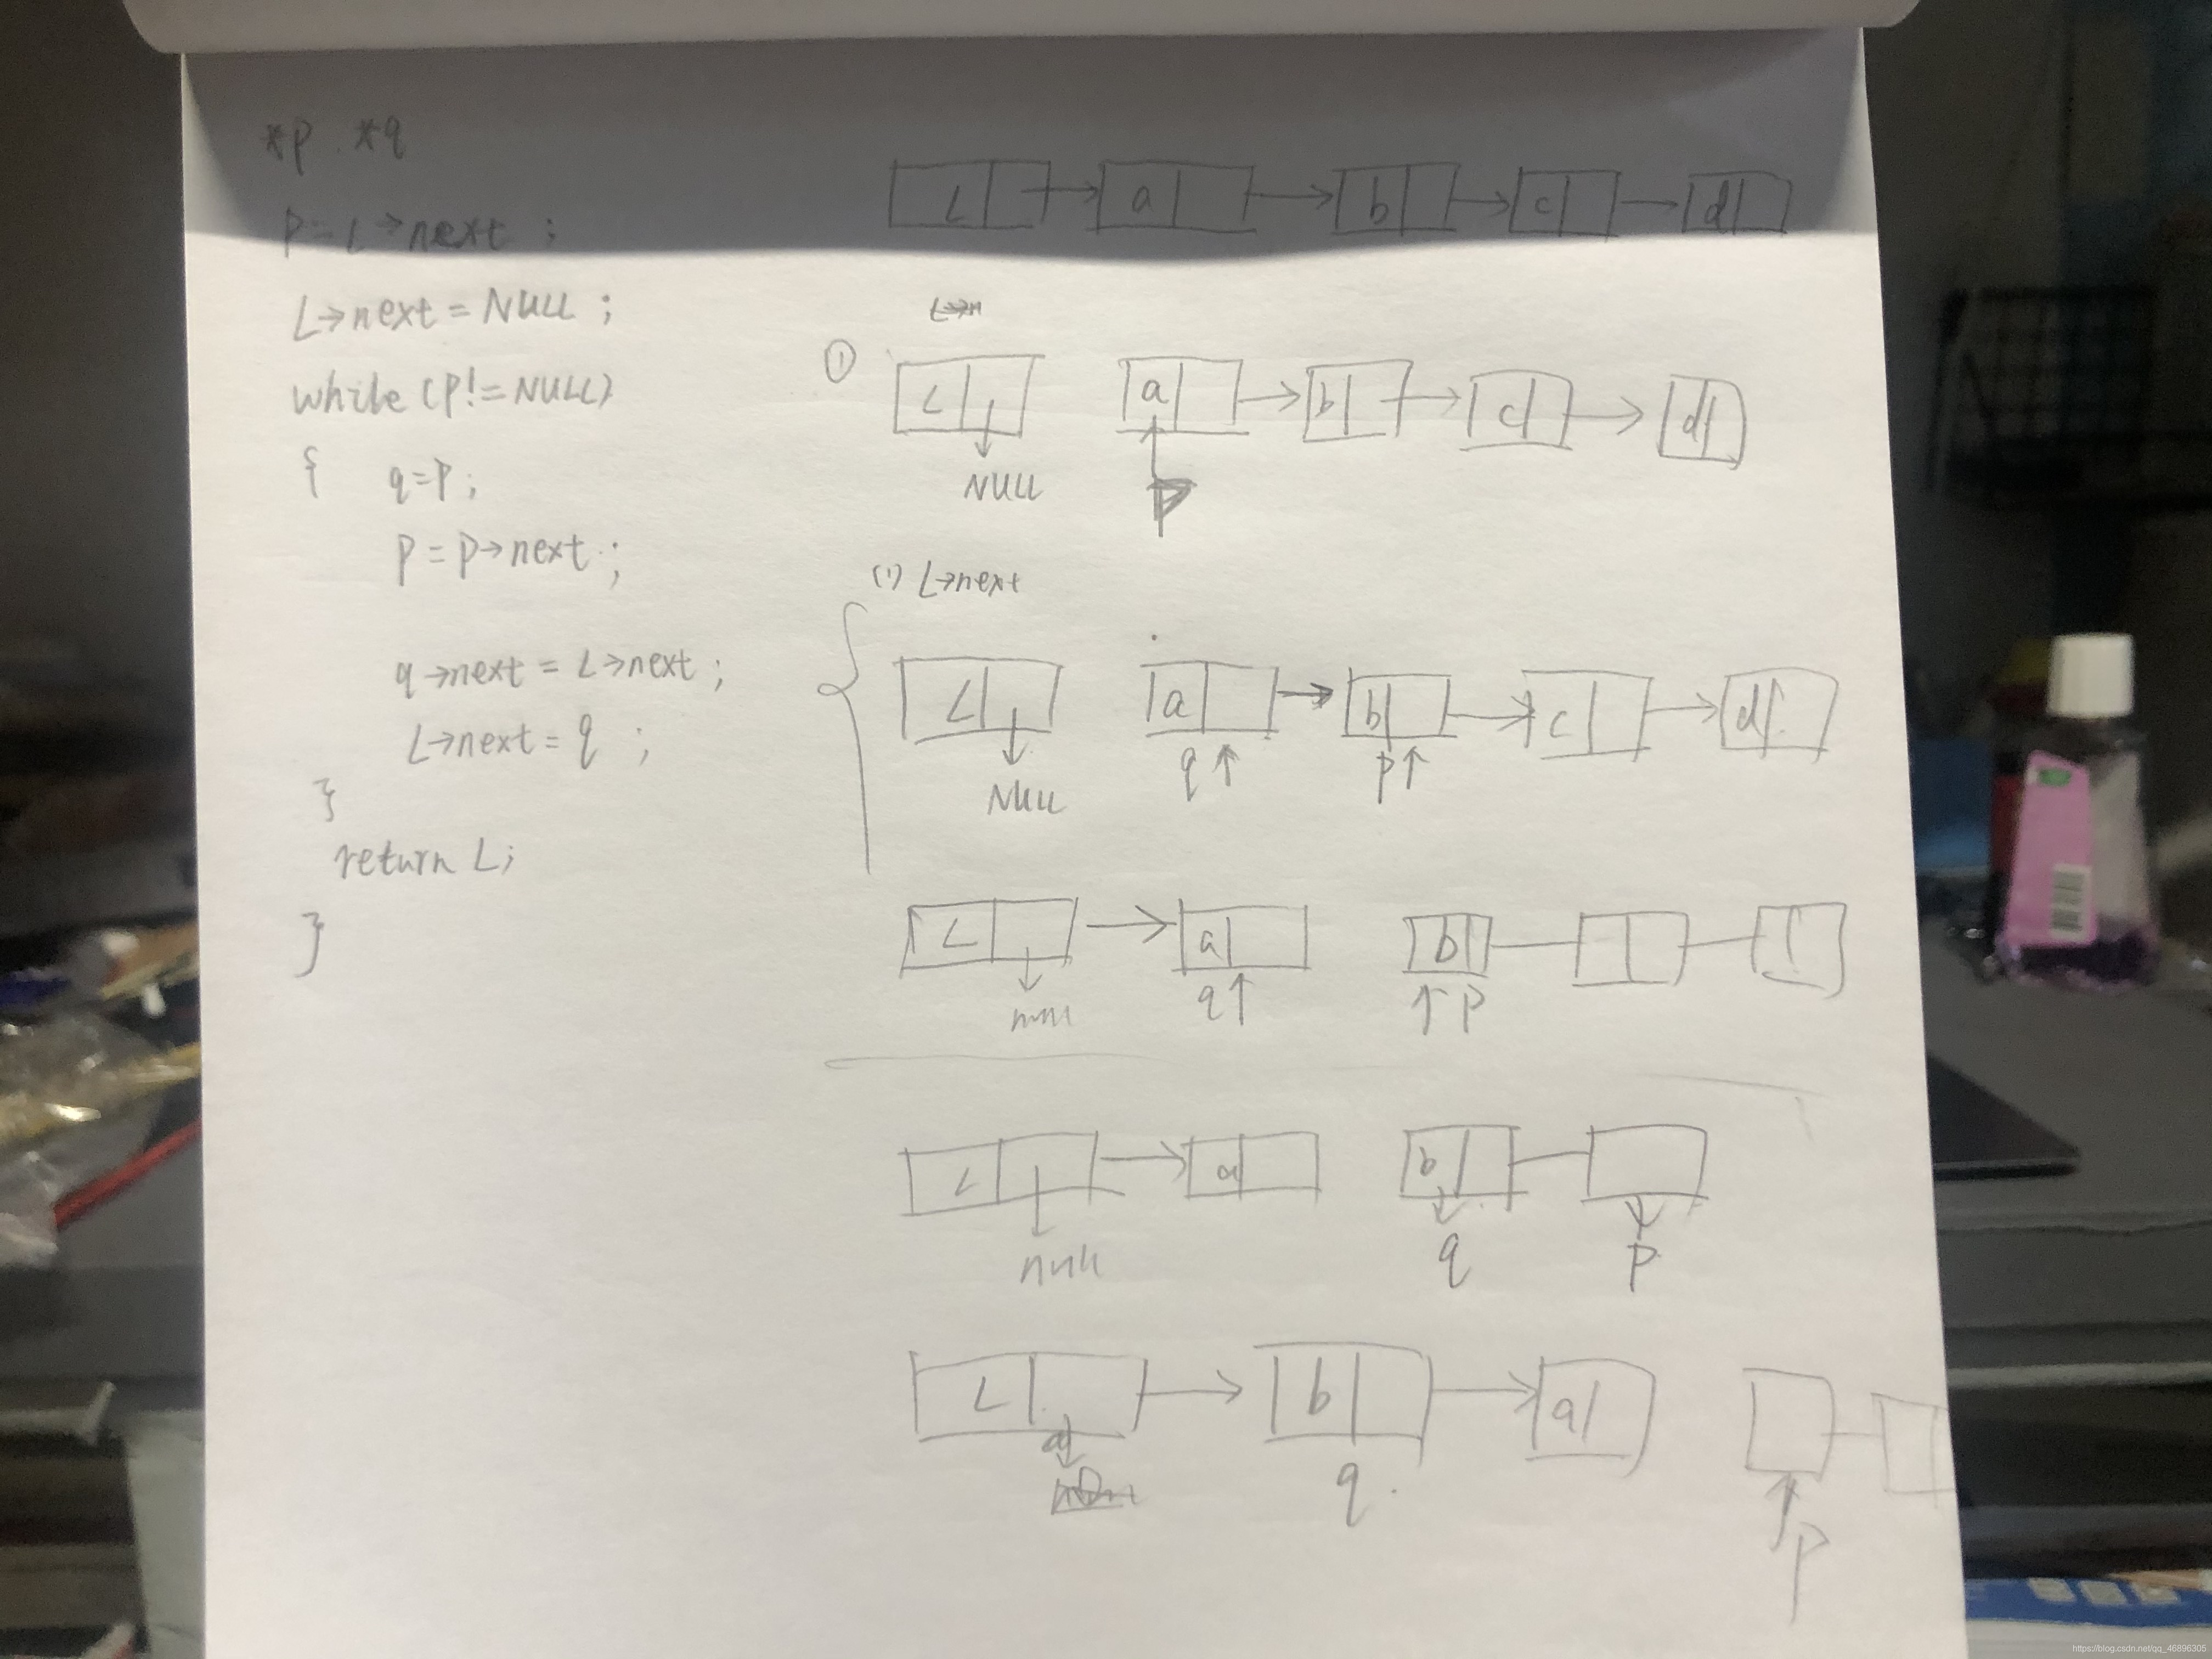 *p . *q
p = L→next ;
L→next = NULL ;
while (p! = NULL)
{ q=p;
p = p→next ;
q→next = L→next ;
L→next = q ;
}
return L;
}
L a b c d
①
L a b c d
NULL p
(1) L→next
L a b c d
q p
NULL
L a b
q p
null
L a b
null q p
L b a
q
p
https://blog.csdn.net/qq_46896305